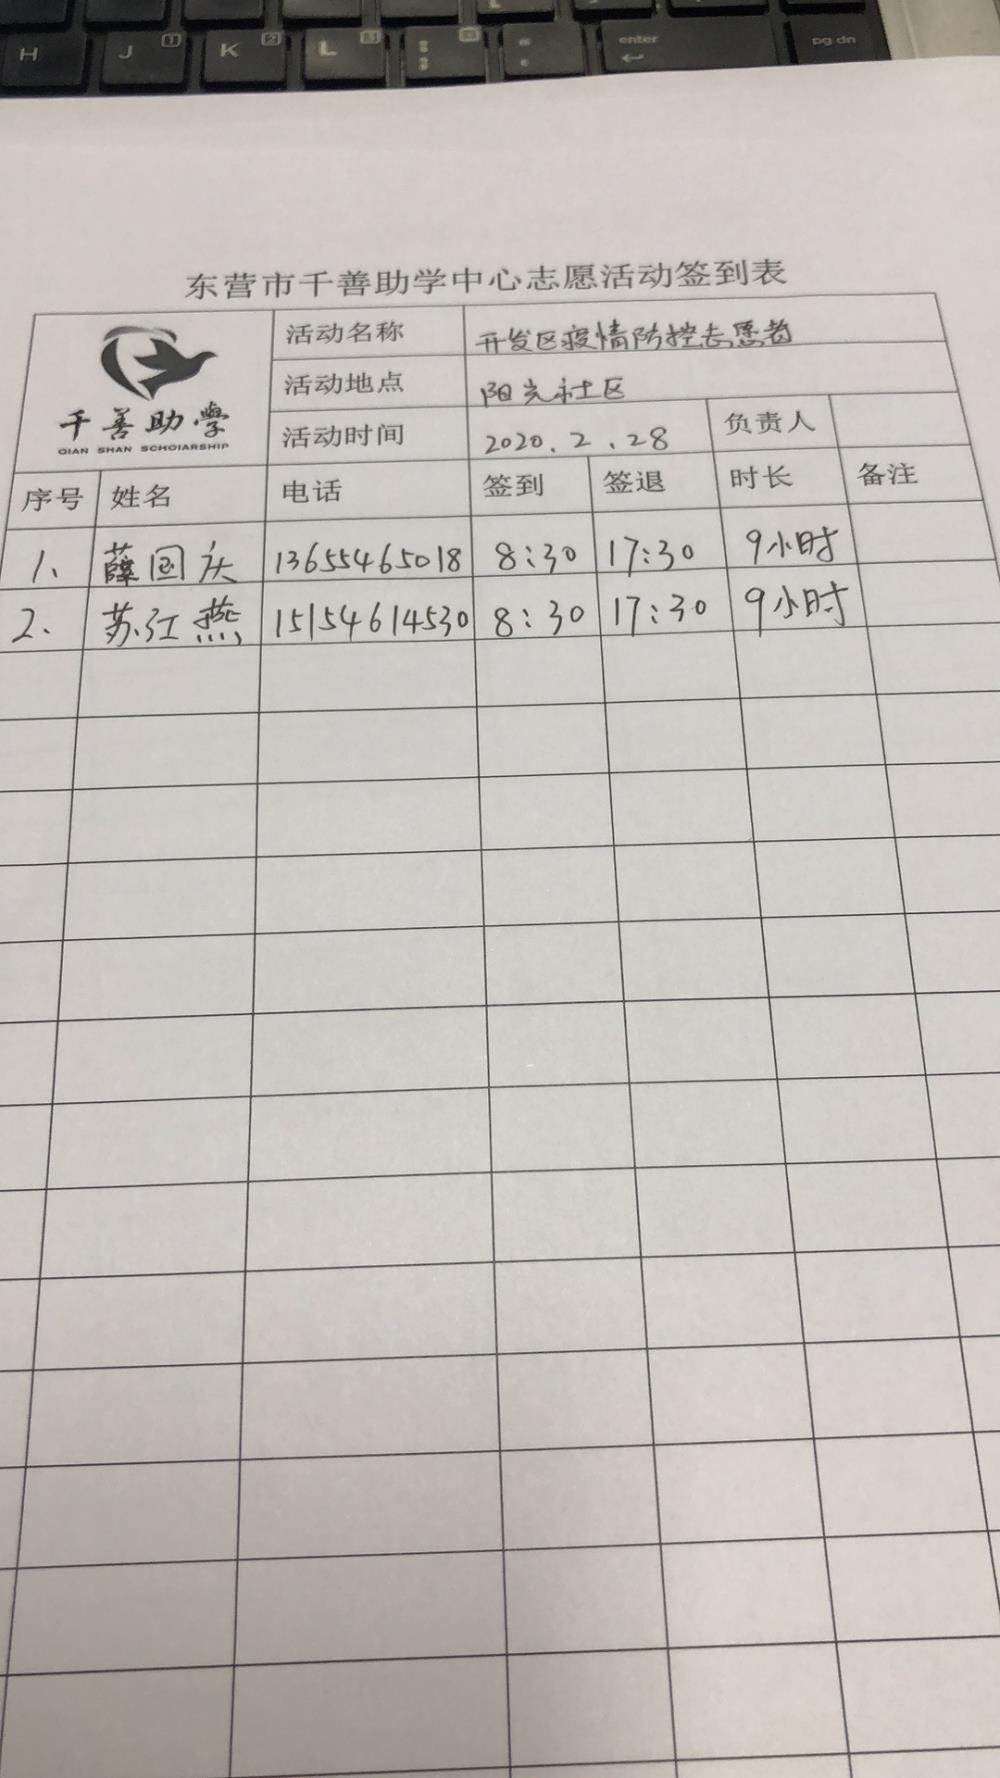 H J 1 K 2 L 3 : ; " ' enter pg dn
东营市千善助学中心志愿活动签到表
千善助學
QIAN SHAN SCHOIARSHIP
活动名称 开发区疫情防控志愿者
活动地点 阳光社区
活动时间 2020.2.28 负责人
序号 姓名 电话 签到 签退 时长 备注
1、 薛国庆 13655465018 8:30 17:30 9小时
2、 苏江燕 15154614530 8:30 17:30 9小时